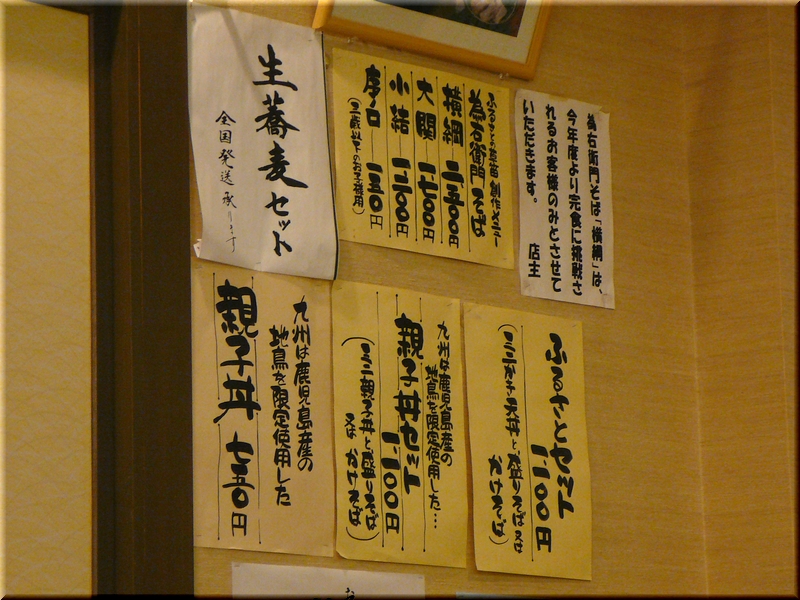 生蕎麦セット
全国発送承ります
ふるさとの草笛 創作メニュー
為右衛門そば
横綱 二、五〇〇円
大関 一、七〇〇円
小結 一、二〇〇円
序ノ口 一五〇円
(三歳以下のお子様用)
為右衛門そば「横綱」は、
今年度より完食に挑戦さ
れるお客様のみとさせて
いただきます。
店主
九州は鹿児島産の
地鳥を限定使用した
親子丼 七五〇円
九州は鹿児島産の
地鳥を限定使用した…
親子丼セット
一、一〇〇円
(ミニ親子丼と盛りそば
又は かけそば)
ふるさとセット
一、一〇〇円
(ミニかき天丼と盛りそば又は
かけそば)